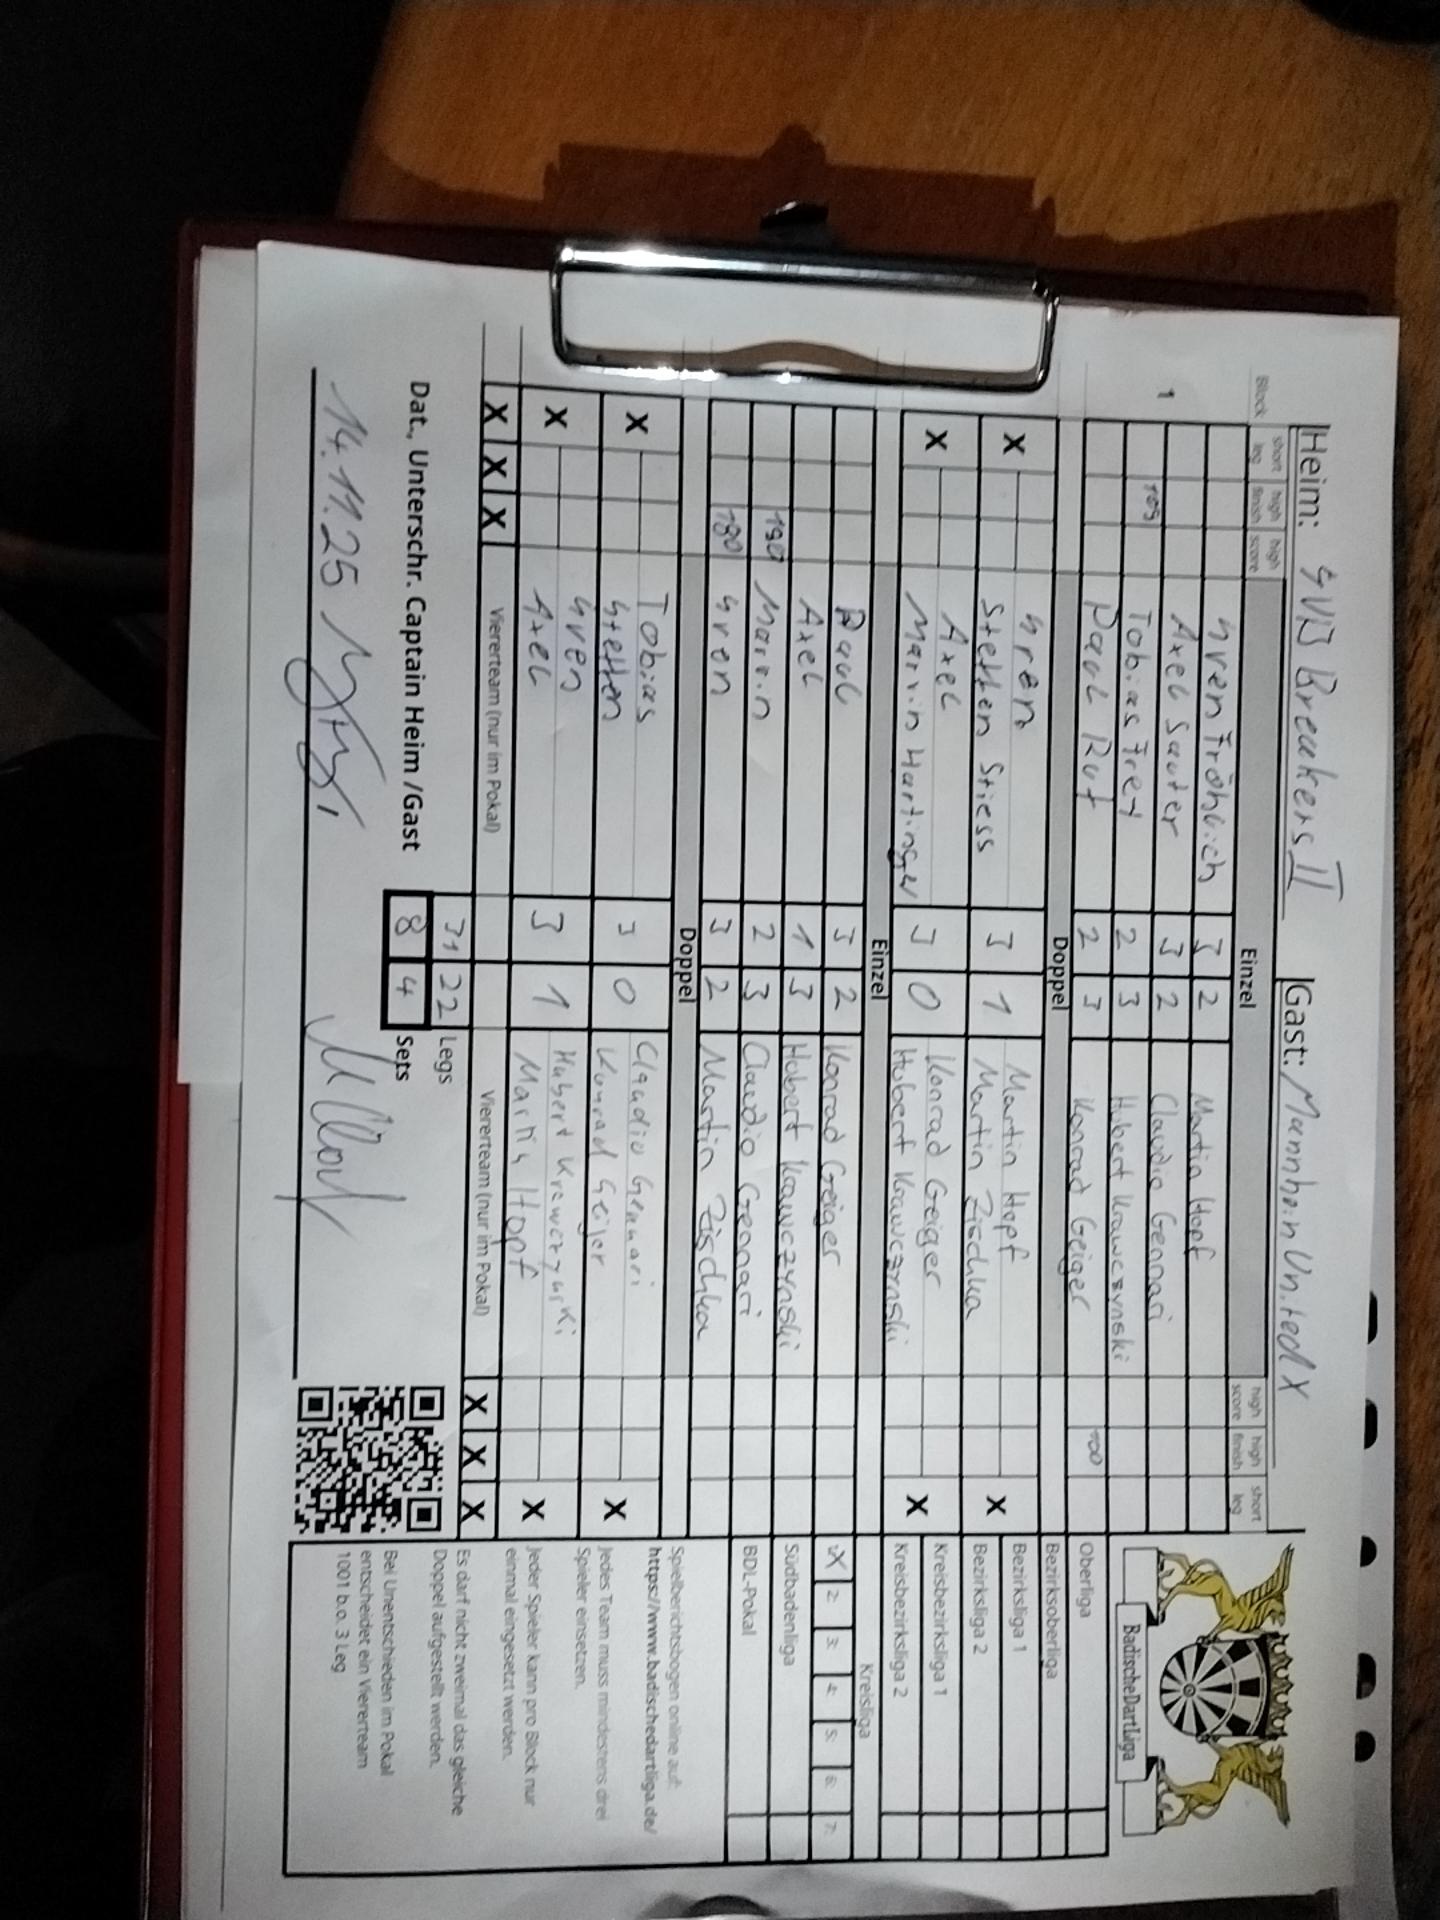 Heim: SVB Breakers II Gast: Mannheim United X
Block short leg high finish high score Einzel high score high finish short leg
1 Sven Fröhlich 3 2 Martin Hopf
Axel Sauter 3 2 Claudio Gennari
109 Tobias Frey 2 3 Hubert Krawczynski
Paul Ruf 2 3 Konrad Geiger 100
Doppel
X Sven 3 1 Martin Hopf X
Steffen Stiess Martin Zischka
X Axel 3 0 Konrad Geiger X
Marvin Hartinger Hubert Krawczynski
Einzel
Paul 3 2 Konrad Geiger
Axel 1 3 Hubert Krawczynski
180 Marvin 2 3 Claudio Gennari
180 Sven 3 2 Martin Zischka
Doppel
X Tobias 3 0 Claudio Gennari X
Steffen Konrad Geiger
X Sven 3 1 Hubert Krawczynski X
Axel Martin Hopf
X X X Viererteam (nur im Pokal) Viererteam (nur im Pokal) X X X
31 22 Legs
Dat., Unterschr. Captain Heim /Gast 8 4 Sets
14.11.25
BadischeDartLiga
Oberliga
Bezirksoberliga
Bezirksliga 1
Bezirksliga 2
Kreisbezirksliga 1
Kreisbezirksliga 2
Kreisliga
X 2: 3: 4: 5: 6: 7:
Südbadenliga
BDL-Pokal
Spielberichtsbogen online auf:
https://www.badischedartliga.de/
Jedes Team muss mindestens drei
Spieler einsetzen.
Jeder Spieler kann pro Block nur
einmal eingesetzt werden.
Es darf nicht zweimal das gleiche
Doppel aufgestellt werden.
Bei Unentschieden im Pokal
entscheidet ein Viererteam
1001 b.o. 3 Leg